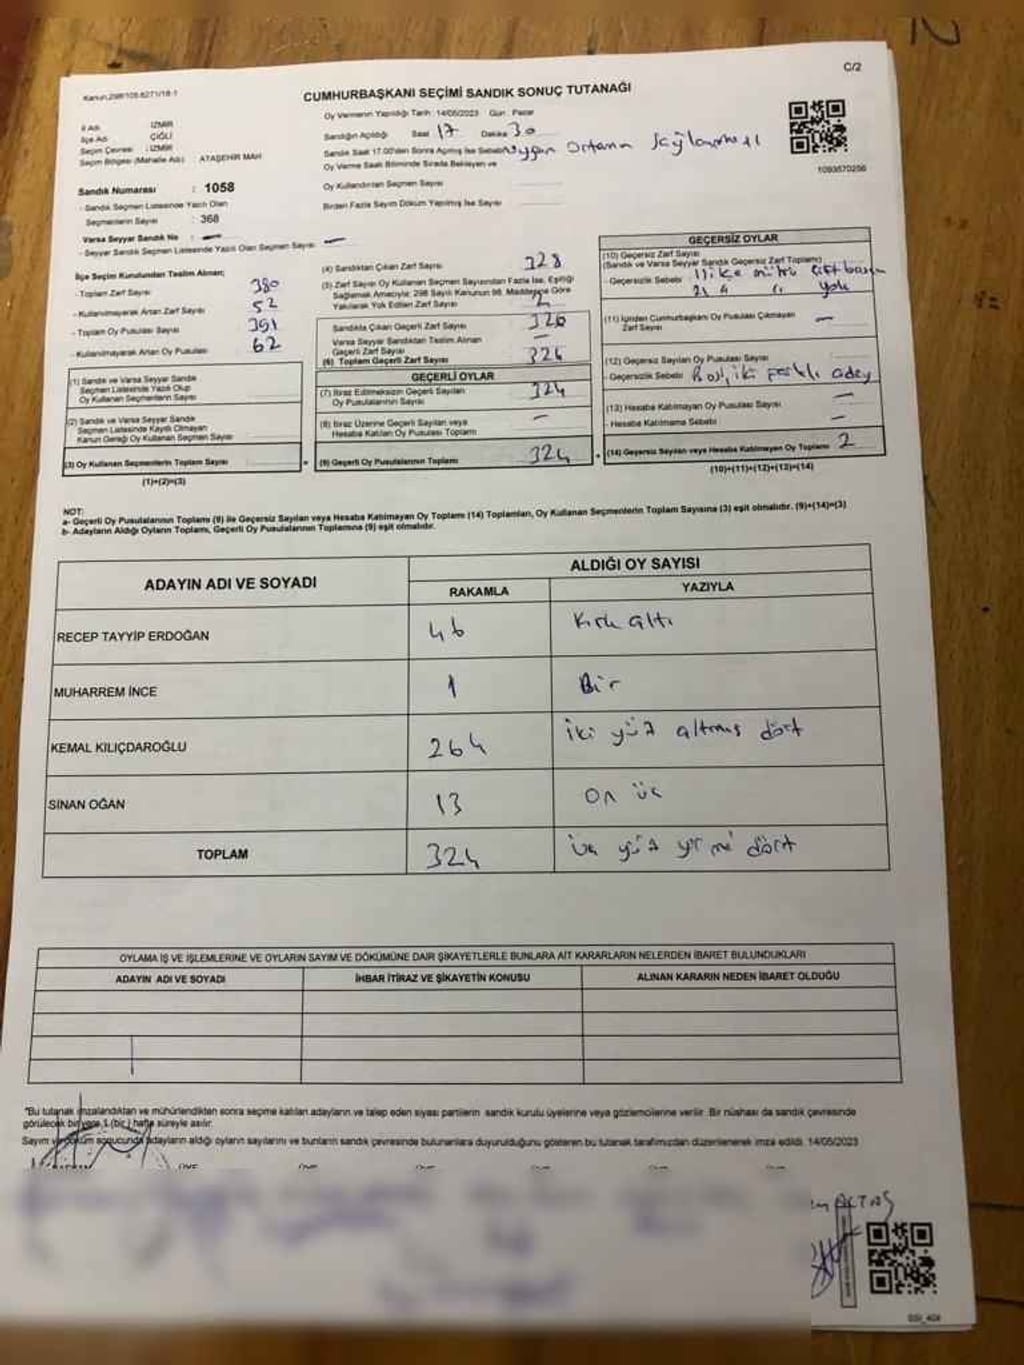 C/2
Kanun.298/105.6271/18-1
CUMHURBAŞKANI SEÇİMİ SANDIK SONUÇ TUTANAĞI
Oy Vermenin Yapıldığı Tarih : 14/05/2023 Gün : Pazar
İl Adı : İZMİR
İlçe Adı : ÇİĞLİ
Seçim Çevresi : İZMİR
Seçim Bölgesi (Mahalle Adı) : ATAŞEHİR MAH
Sandığın Açıldığı Saat 17 Dakika 30
Sandık Saat 17.00'den Sonra Açılmış İse Sebebi Uygun Ortamın Sağlanması
Oy Verme Saati Bitiminde Sırada Bekleyen ve
Oy Kullandırılan Seçmen Sayısı
Birden Fazla Sayım Döküm Yapılmış İse Sayısı
1093570256
Sandık Numarası : 1058
- Sandık Seçmen Listesinde Yazılı Olan
Seçmenlerin Sayısı : 368
Varsa Seyyar Sandık No : —
- Seyyar Sandık Seçmen Listesinde Yazılı Olan Seçmen Sayısı : —
İlçe Seçim Kurulundan Teslim Alınan;
- Toplam Zarf Sayısı 380
- Kullanılmayarak Artan Zarf Sayısı 52
- Toplam Oy Pusulası Sayısı 391
- Kullanılmayarak Artan Oy Pusulası 62
(1) Sandık ve Varsa Seyyar Sandık
Seçmen Listesinde Yazılı Olup
Oy Kullanan Seçmenlerin Sayısı
(2) Sandık ve Varsa Seyyar Sandık
Seçmen Listesinde Kayıtlı Olmayan
Kanun Gereği Oy Kullanan Seçmen Sayısı
(3) Oy Kullanan Seçmenlerin Toplam Sayısı
(1)+(2)=(3)
(4) Sandıktan Çıkan Zarf Sayısı 328
(5) Zarf Sayısı Oy Kullanan Seçmen Sayısından Fazla İse, Eşitliği
Sağlamak Amacıyla; 298 Sayılı Kanunun 98. Maddesine Göre
Yakılarak Yok Edilen Zarf Sayısı 2
Sandıkta Çıkan Geçerli Zarf Sayısı 326
Varsa Seyyar Sandıktan Teslim Alınan
Geçerli Zarf Sayısı —
(6) Toplam Geçerli Zarf Sayısı 326
GEÇERLİ OYLAR
(7) İtiraz Edilmeksizin Geçerli Sayılan
Oy Pusulalarının Sayısı 324
(8) İtiraz Üzerine Geçerli Sayılan veya
Hesaba Katılan Oy Pusulası Toplamı —
(9) Geçerli Oy Pusulalarının Toplamı 324
GEÇERSİZ OYLAR
(10) Geçersiz Zarf Sayısı
(Sandık ve Varsa Seyyar Sandık Geçersiz Zarf Toplamı)
- Geçersizlik Sebebi
yok
(11) İçinden Cumhurbaşkanı Oy Pusulası Çıkmayan
Zarf Sayısı —
(12) Geçersiz Sayılan Oy Pusulası Sayısı
- Geçersizlik Sebebi aday
(13) Hesaba Katılmayan Oy Pusulası Sayısı —
- Hesaba Katılmama Sebebi —
(14) Geçersiz Sayılan veya Hesaba Katılmayan Oy Toplamı 2
(10)+(11)+(12)+(13)=(14)
NOT:
a- Geçerli Oy Pusulalarının Toplamı (9) ile Geçersiz Sayılan veya Hesaba Katılmayan Oy Toplamı (14) Toplamları, Oy Kullanan Seçmenlerin Toplam Sayısına (3) eşit olmalıdır. (9)+(14)=(3)
b- Adayların Aldığı Oyların Toplamı, Geçerli Oy Pusulalarının Toplamına (9) eşit olmalıdır.
ADAYIN ADI VE SOYADI
ALDIĞI OY SAYISI
RAKAMLA YAZIYLA
RECEP TAYYİP ERDOĞAN 46 Kırk altı
MUHARREM İNCE 1 Bir
KEMAL KILIÇDAROĞLU 264 iki yüz altmış dört
SİNAN OĞAN 13 on üç
TOPLAM 324 üç yüz yirmi dört
OYLAMA İŞ VE İŞLEMLERİNE VE OYLARIN SAYIM VE DÖKÜMÜNE DAİR ŞİKAYETLERLE BUNLARA AİT KARARLARIN NELERDEN İBARET BULUNDUKLARI
ADAYIN ADI VE SOYADI İHBAR İTİRAZ VE ŞİKAYETİN KONUSU ALINAN KARARIN NEDEN İBARET OLDUĞU
*Bu tutanak imzalandıktan ve mühürlendikten sonra seçime katılan adayların ve talep eden siyasi partilerin sandık kurulu üyelerine veya gözlemcilerine verilir. Bir nüshası da sandık çevresinde
görülecek bir yere 1 (bir) hafta süreyle asılır.
Sayım ve döküm sonucunda adayların aldığı oyların sayılarını ve bunların sandık çevresinde bulunanlara duyurulduğunu gösteren bu tutanak tarafımızdan düzenlenerek imza edildi. 14/05/2023
AKTAŞ